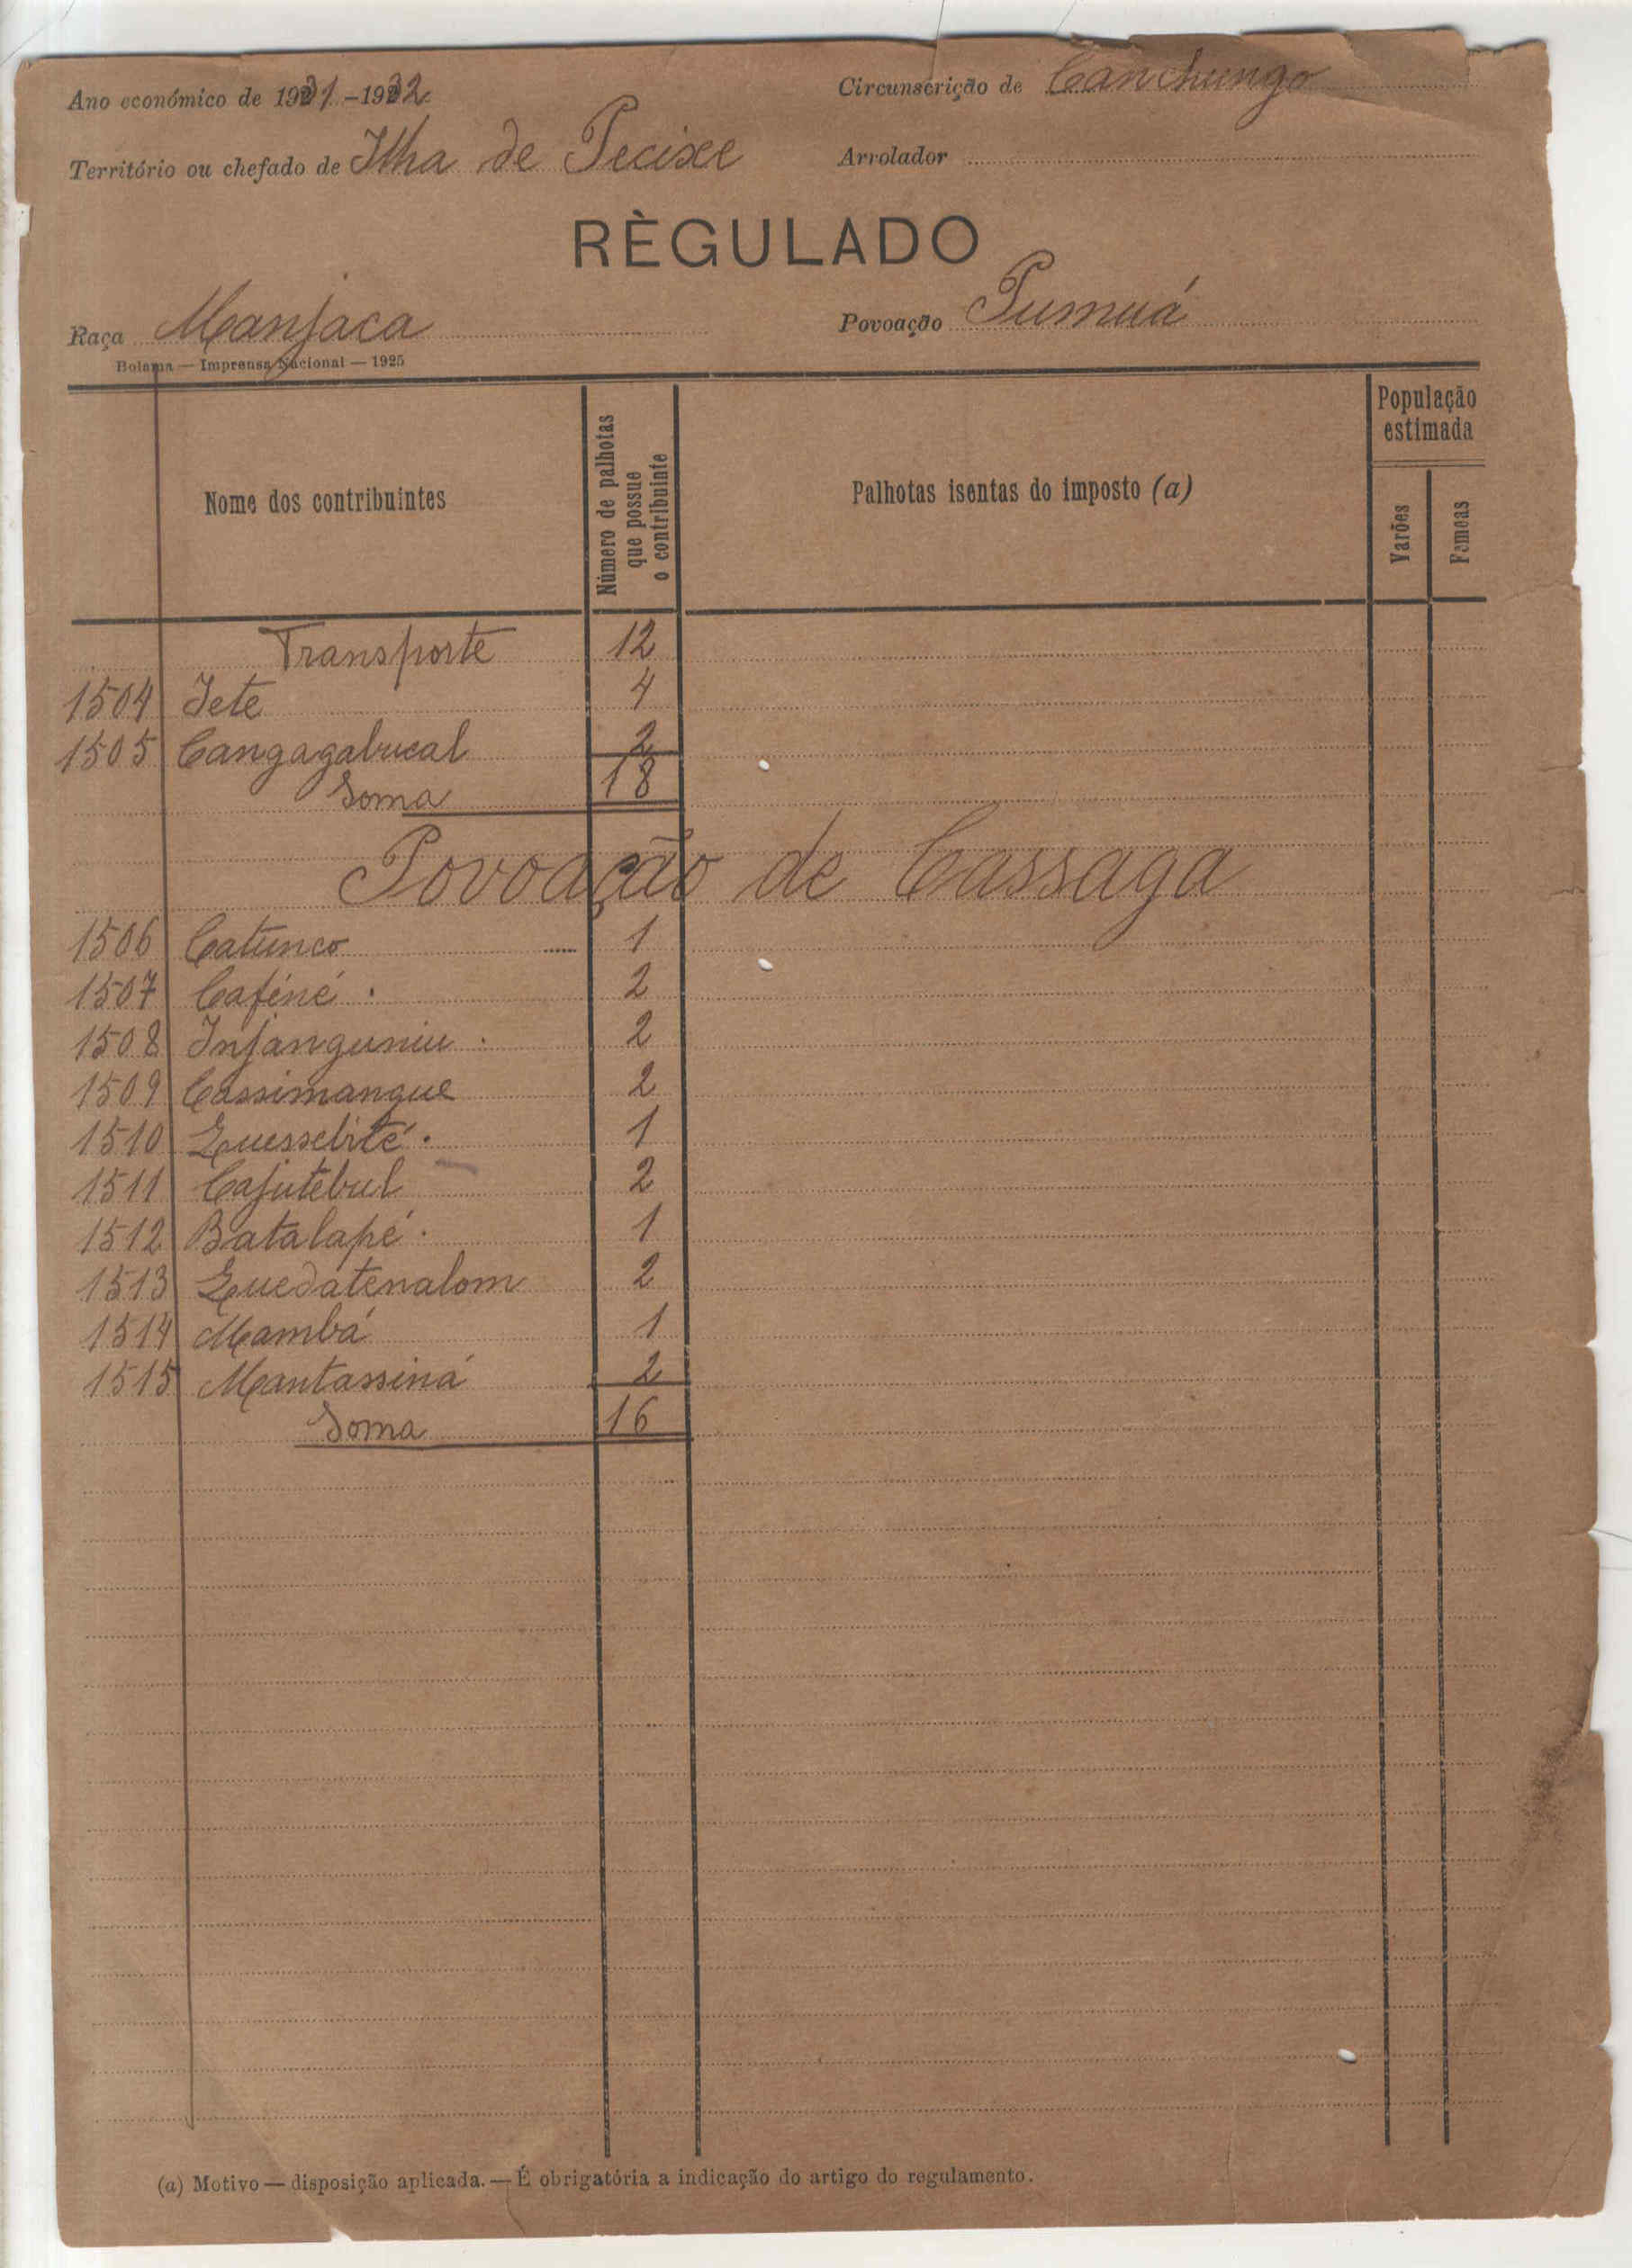 Ano económico de 1931-1932
Circunscrição de Canchungo
Território ou chefado de Ilha de Pecixe
Arrolador
RÈGULADO
Raça Manjaca
Povoação Pumuá
Bolama — Imprensa Nacional — 1925
Nome dos contribuintes
Número de palhotas
que possue
o contribuinte
Palhotas isentas do imposto (a)
População
estimada
Varões
Femeas
Transporte 12
1504 Jete 4
1505 Cangagabucal 2
Soma 18
Povoação de Cassaga
1506 Catunco 1
1507 Caféné 2
1508 Injanguniu 2
1509 Cassimangue 2
1510 Quesselité 1
1511 Cajutebul 2
1512 Batalapé 1
1513 Quedatenalom 2
1514 Mambá 1
1515 Mantassiná 2
Soma 16
(a) Motivo — disposição aplicada. — É obrigatória a indicação do artigo do regulamento.